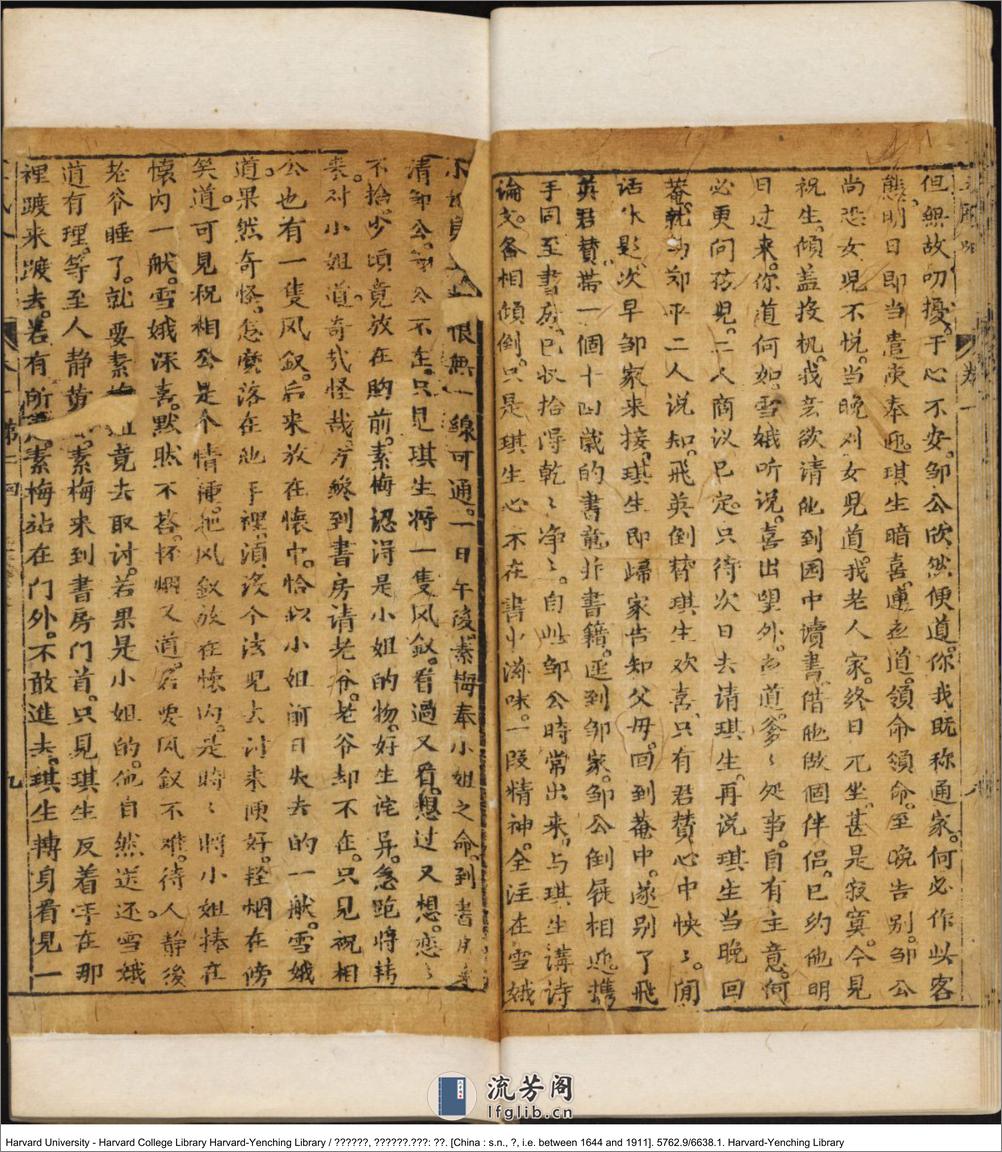 但無故叨擾。于心不安。邹公欣然便道。你我既称通家。何必作此客
態。明日即当奉迎。琪生暗喜。連道。領命領命。至晚告别。邹公
尚恐女兒不悦。当晚对女兒道。我老人家。终日兀坐。甚是寂寞。今見
祝生。傾盖投机。我意欲请他到园中讀書。借他做個伴侣。已约他明
日过来。你道何如。雪娥听说。喜出望外。道。爹〻処事。自有主意。何
必更问孩兒。二人商议已定。只待次日去请琪生。再说琪生当晚回
菴。就与郑平二人说知。飛英倒替琪生欢喜。只有君賛心中怏〻。閒
话休题。次早邹家来接。琪生即歸家告知父母。回到菴中。遂别了飛
英君賛。带一個十四歳的書童並書籍。逕到邹家。邹公倒屣相迎。携
手同至書房。已收拾得乾〻净〻。自此邹公時常出来。与琪生講诗
論文。各相傾倒。只是琪生心不在書中滋味。一段精神。全注在雪娥
卷一
恨無一線可通。一日午後。素梅奉小姐之命。到書房
清邹公。公不在。只見琪生将一隻凤釵。看過又看。想过又想。恋〻
不捨。少頃竟放在胸前。素梅認淂是小姐的物。好生诧异。急跑将转
来。对小姐道。奇哉怪哉。方纔到書房请老爷。老爷却不在。只見祝相
公也有一隻凤釵。后来放在懐中。恰似小姐前日失去的一般。雪娥
道。果然奇怪。怎麽落在他手裡。須设个法兒去讨来便好。輕烟在傍
笑道。可見祝相公是个情種。把凤釵放在懐内。是時〻将小姐捧在
懐内一般。雪娥深喜。默然不荅。轻烟又道。若要凤釵不难。待人静後
老爷睡了。就要素梅姐竟去取讨。若果是小姐的。他自然送还。雪娥
道有理。等至人静黄素梅来到書房門首。只見琪生反着手在那
裡踱来踱去。若有所素梅站在门外。不敢進去。琪生轉身看見一
九
流芳阁
lfglib.cn
Harvard University - Harvard College Library Harvard-Yenching Library / ??????, ??????.???: ??. [China : s.n., ?, i.e. between 1644 and 1911]. 5762.9/6638.1. Harvard-Yenching Library